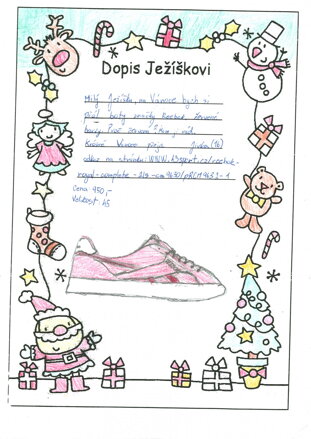 Dopis Ježíškovi
Milý Ježíšku, na Vánoce bych si
přál boty značky Reebok, červené
barvy. Proč zrovna
Krásné Vánoce přeje Jirka (16)
odkaz na stránku: WWW.A3sport.cz/reebok-
royal-complete
Cena 950,-
Velikost: 45